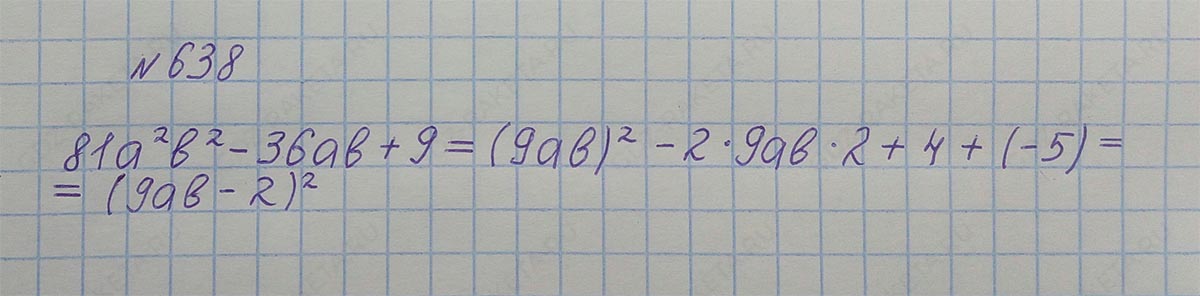 №638
81a²b² - 36ab + 9 = (9ab)² - 2·9ab·2 + 4 + (-5) =
= (9ab - 2)²